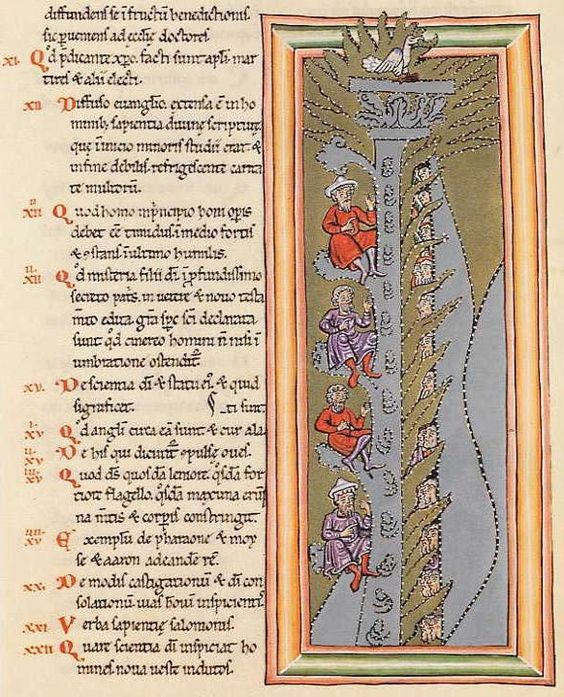 diffundens se ī fructū benedictionis.
sic pueniens ad ecclie doctores
xi. Qd p̄dicante xp̄o. facti sunt apl̄i. mar
tires & alii electi.
xii. Diffuso euanglio. extensa ē in ho
minib; sapientia diuine scripturę.
que ī inicio minoris studii erat. &
in fine debilis. refrigescente carita
te multorū.
Quod homo in principio boni opis
debet eē timidus. in medio fortis
& stans. in ultimo humilis.
Qd misteria filii di ī profundissimo
secreto patris. in uetere & nouo testa
mto edita. gr̄a sps sci declarata
sunt. qd cinereo homini ñ nisi ī
umbratione ostendit᷑.
xv. De scientia di & statu ei. & quid
significet. ti sunt
Qd angli circa eā sunt & cur ala
De his qui dicunt᷑ epulse oues.
Quod ds quosdā leniore. qsdā for
tiore flagello. qsdā maxima erūp
na mtis & corpis constringit.
Exemplū de pharaone & moy
se & aaron ad eandē rē.
xx. De modis castigationū & di con
solationū. uias hoūm inspicientis
xxi Verba sapientię salomonis.
xxii Quare scientia di inspiciat ho
mines noua ueste indutos.